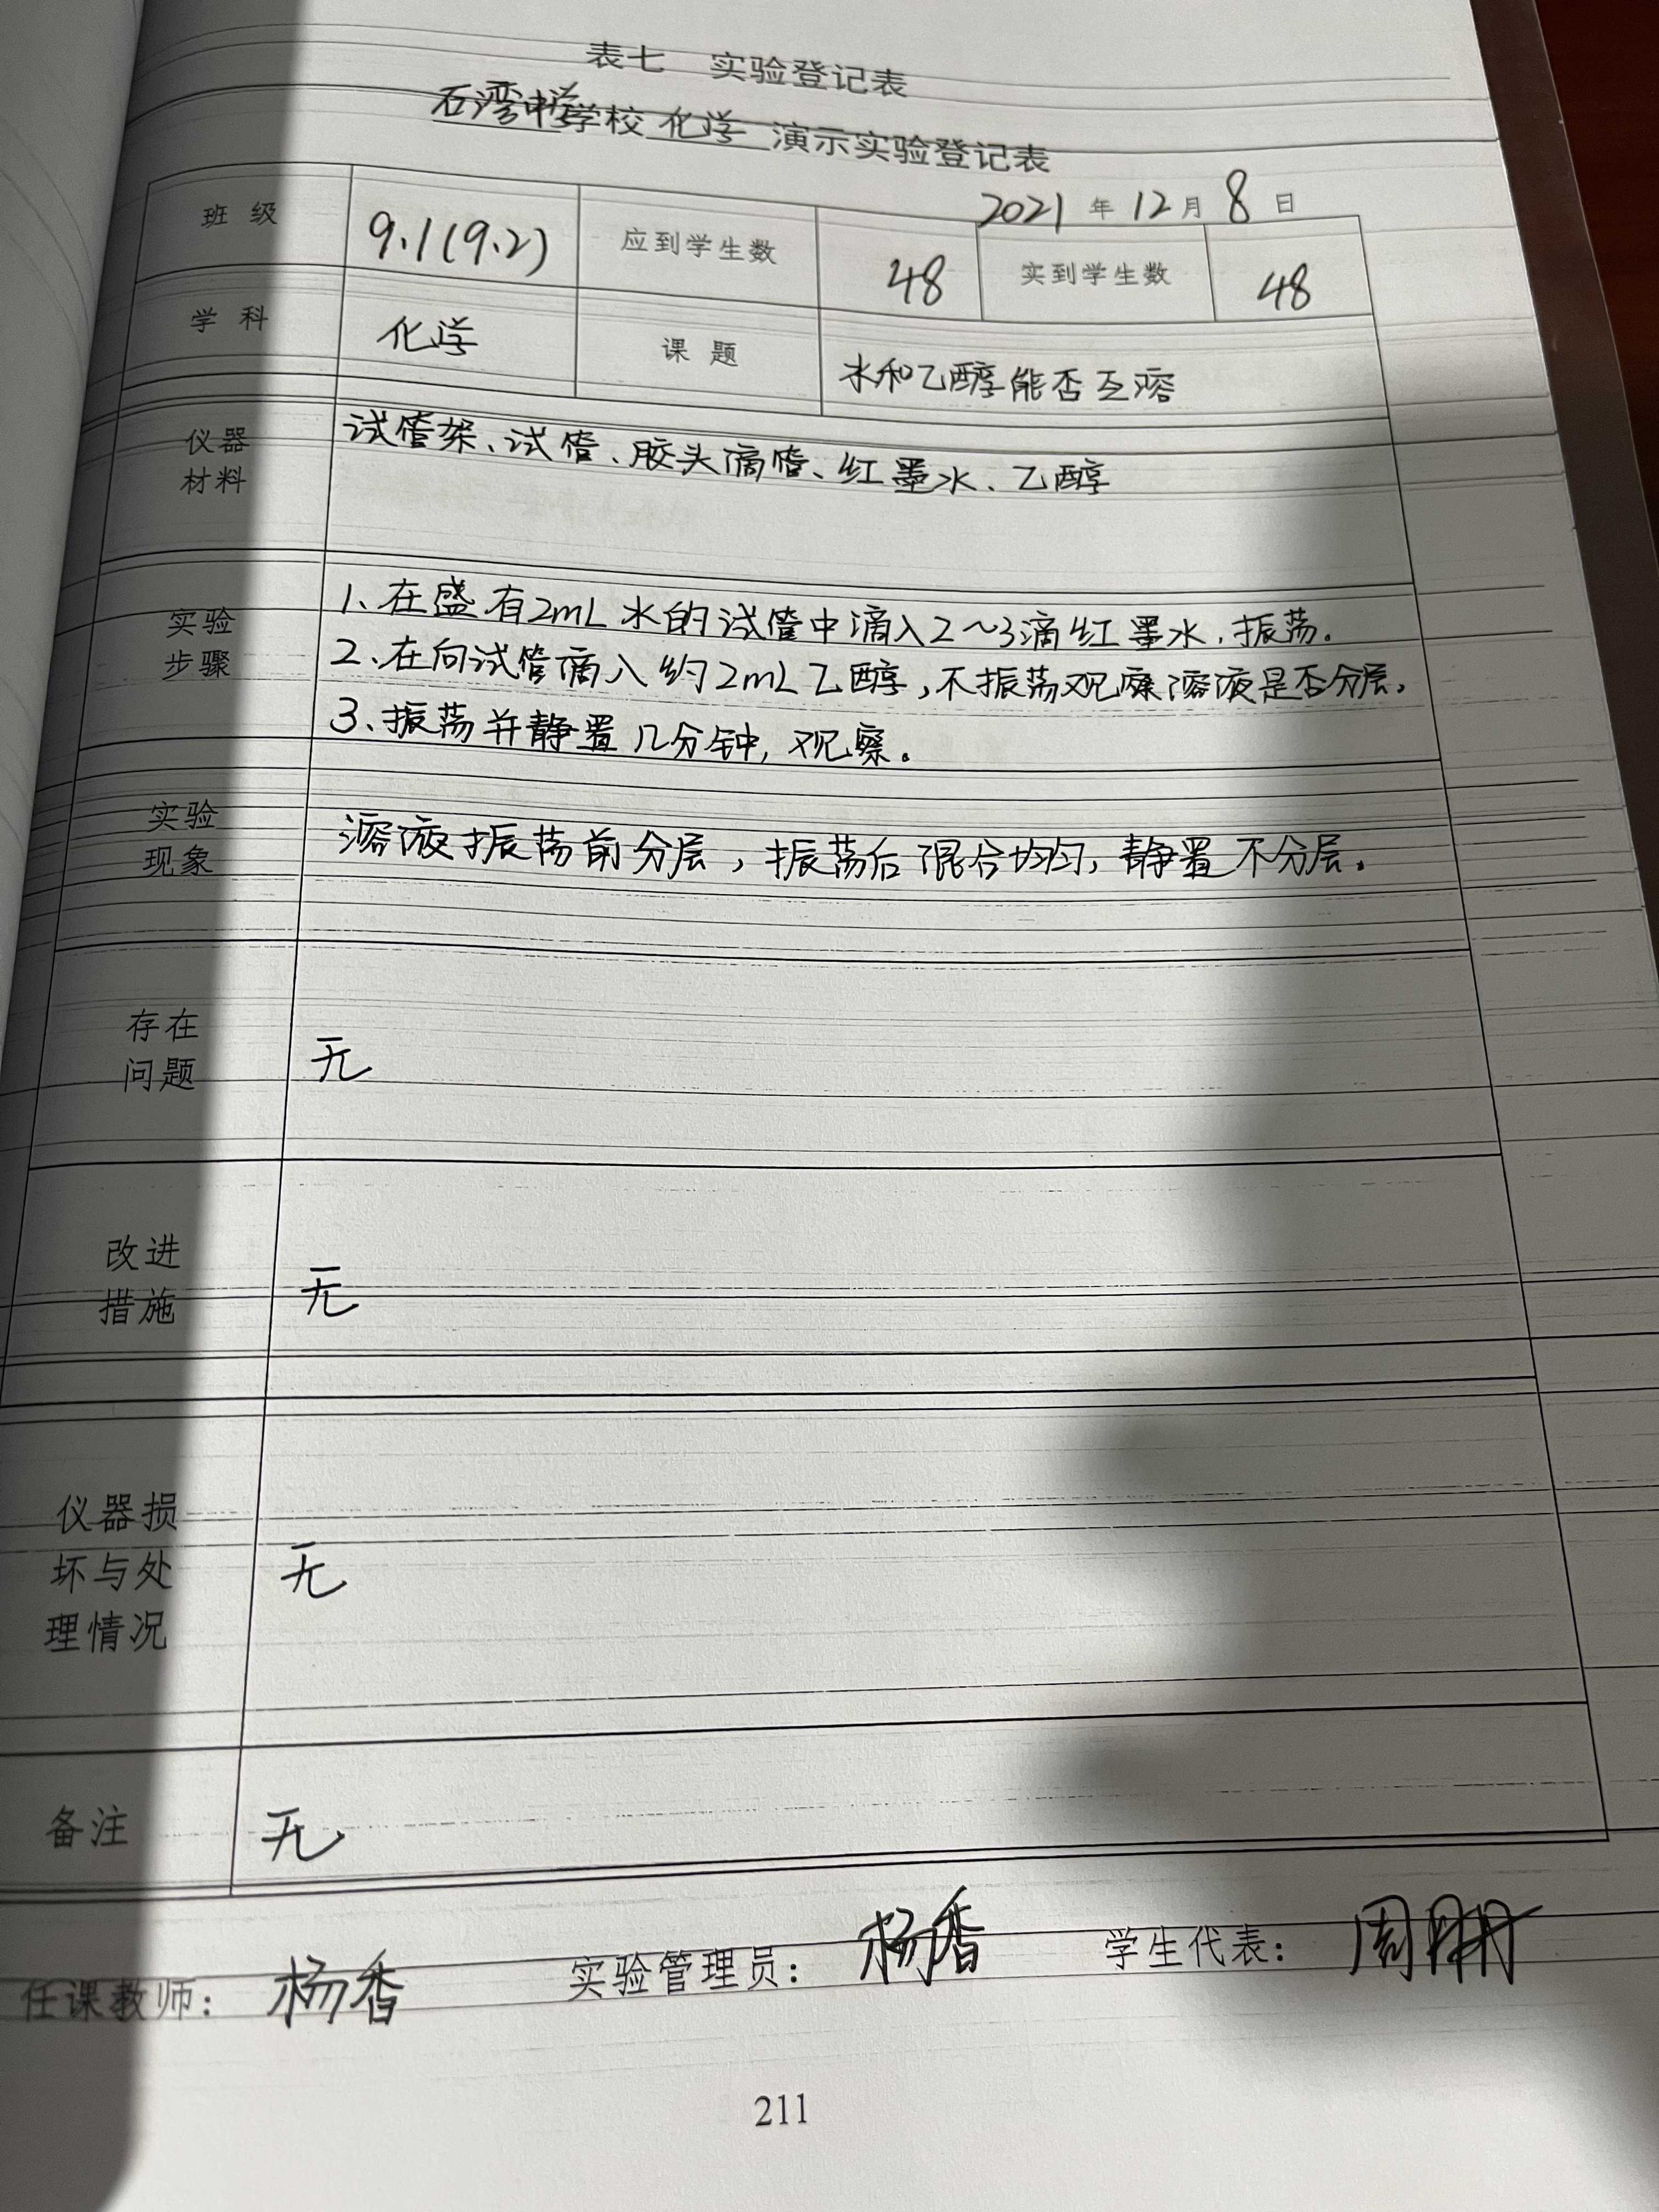 表七 实验登记表
石湾中学学校 化学 演示实验登记表
2021 年 12 月 8 日
班 级 9.1(9.2) 应到学生数 48 实到学生数 48
学 科 化学 课 题 水和乙醇能否互溶
仪器
材料
试管架、试管、胶头滴管、红墨水、乙醇
实验
步骤
1、在盛有2mL水的试管中滴入2~3滴红墨水,振荡.
2、在向试管滴入约2mL乙醇,不振荡观察溶液是否分层,
3、振荡并静置几分钟,观察。
实验
现象
溶液振荡前分层,振荡后混合均匀,静置不分层。
存在
问题
无
改进
措施
无
仪器损
坏与处
理情况
无
备注 无
任课教师: 杨香 实验管理员: 杨香 学生代表: 周
211